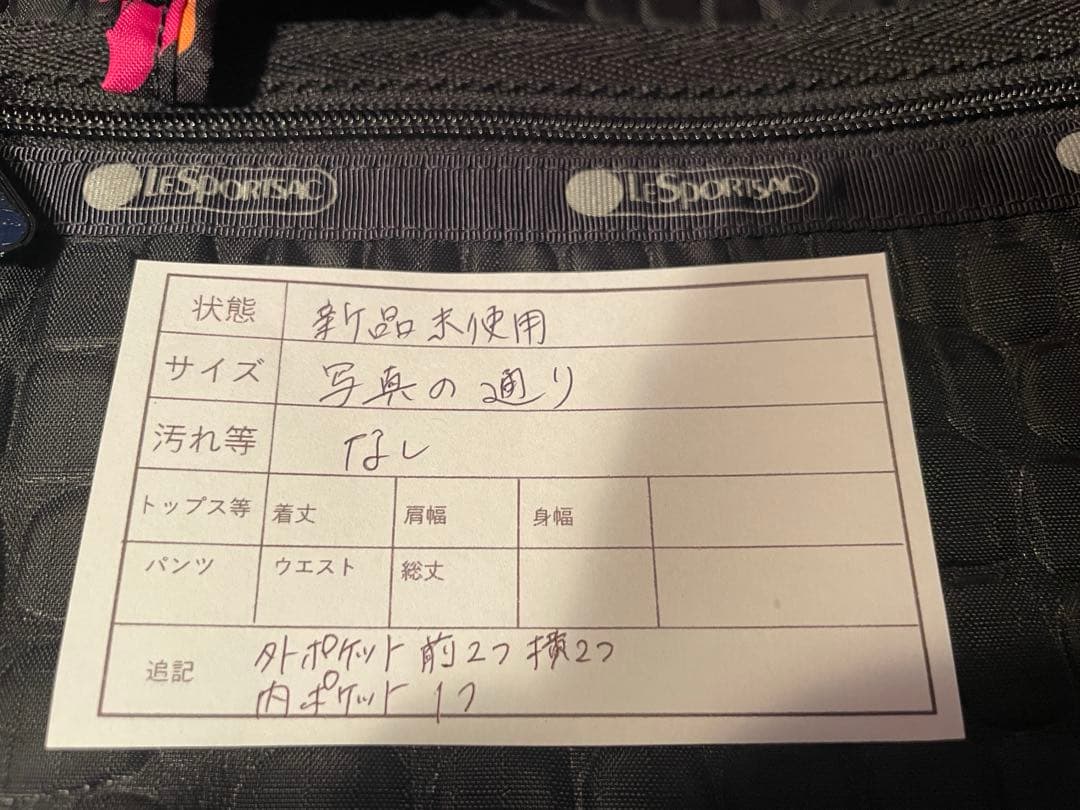 LESPORTSAC LESPORTSAC
状態 新品未使用
サイズ 写真の通り
汚れ等 なし
トップス等 着丈 肩幅 身幅
パンツ ウエスト 総丈
追記 外ポケット前2つ横2つ
内ポケット1つ